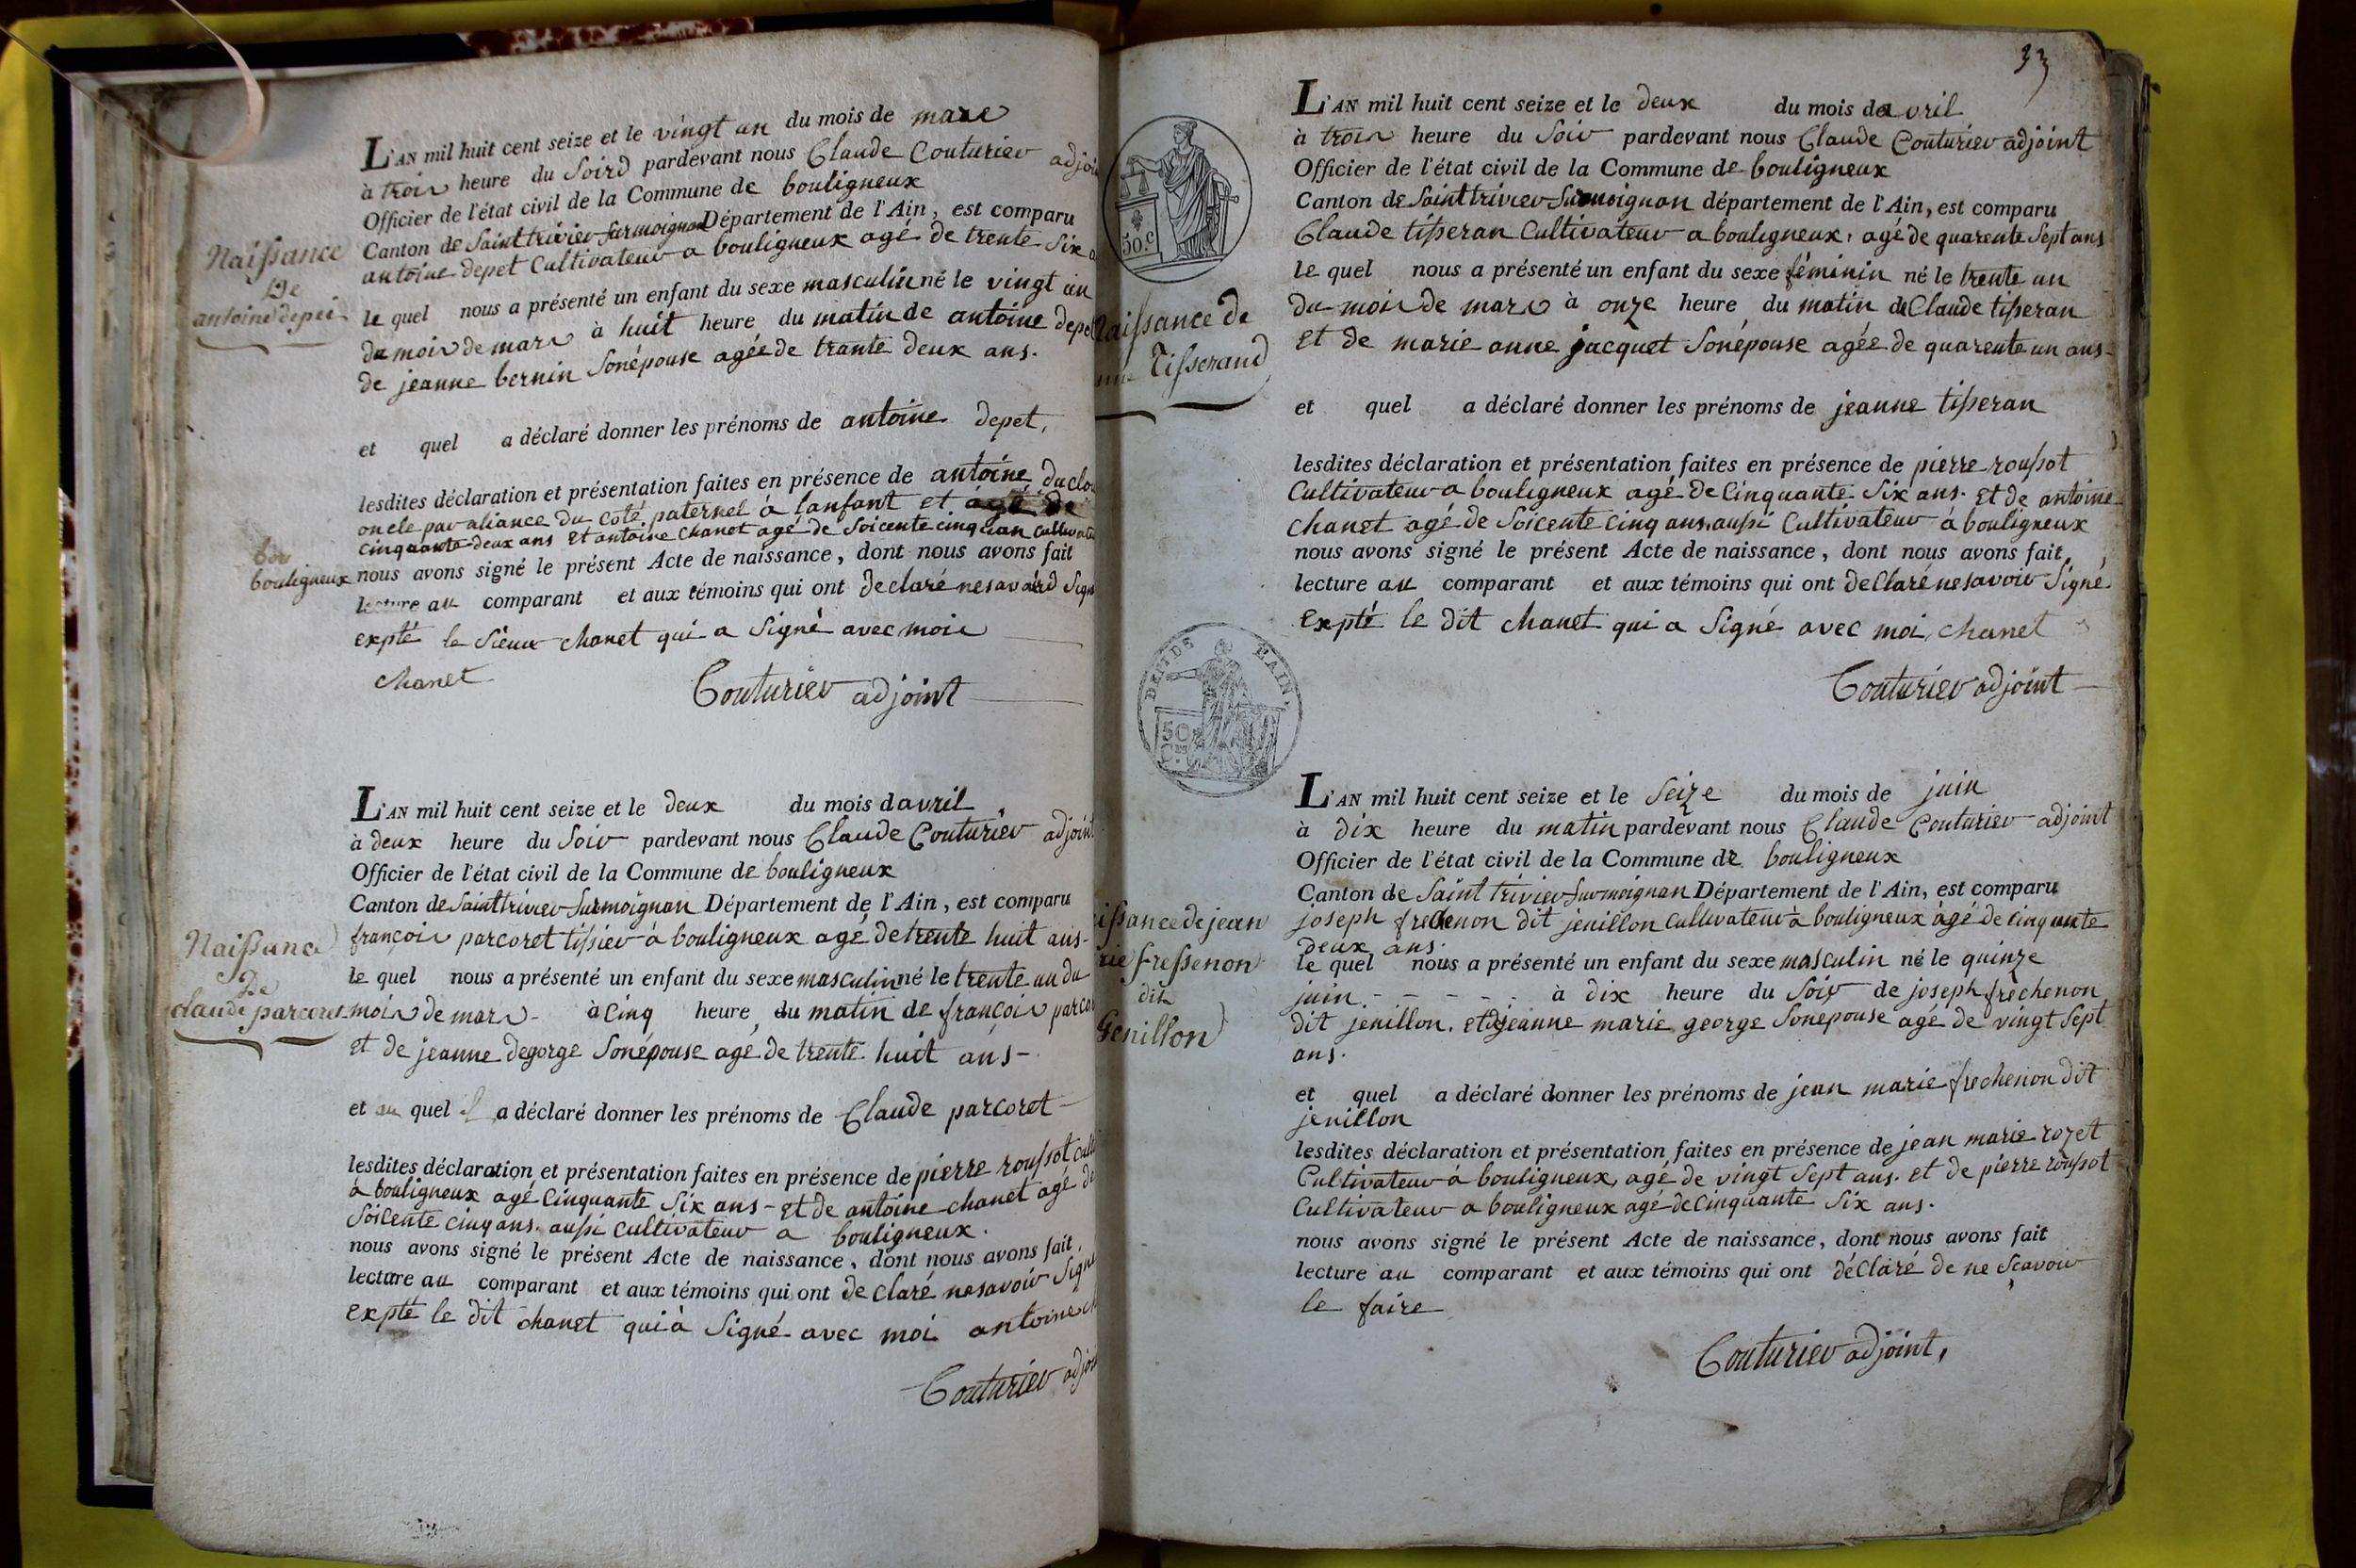 Naissance
De
antoine depei
L'AN mil huit cent seize et le vingt un du mois de mars
à trois heure du Soird pardevant nous Claude Couturier
Officier de l'état civil de la Commune de bouligneux
Canton de Saint trivier Surmoignan Département de l'Ain, est comparu
antoine depet Cultivateur a bouligneux agé de trente Six
le quel nous a présenté un enfant du sexe masculin né le vingt un
du mois de mars à huit heure du matin de antoine
de jeanne bernin Sonépouse agée de trante deux ans.
et quel a déclaré donner les prénoms de antoine depet,
lesdites déclaration et présentation faites en présence de antoine
oncle par aliance du coté paternel à lanfant et agé de
cinquante deux ans et antoine chanet agé de Soicente cinq
bouligneux nous avons signé le présent Acte de naissance, dont nous avons fait
lecture au comparant et aux témoins qui ont declaré nesavoird
expté le Sieur chanet qui a Signé avec moi
chanet
Couturier adjoint
Naissance
De
claude
L'AN mil huit cent seize et le deux du mois davril
à deux heure du Soir pardevant nous Claude Couturier adjoint
Officier de l'état civil de la Commune de bouligneux
Canton de Saint trivier Surmoignan Département de l'Ain, est comparu
françois parcoret tissier à bouligneux agé de trente huit ans-
le quel nous a présenté un enfant du sexe masculin né le trente un du
mois de mars - à cinq heure du matin de françois
et de jeanne degorge Sonépouse agé de trente huit ans-
et au quel il a déclaré donner les prénoms de Claude parcoret
lesdites déclaration et présentation faites en présence de pierre roussot
à bouligneux agé Cinquante Six ans - et de antoine chanet agé de
Soicente cinq ans. aussi Cultivateur a bouligneux.
nous avons signé le présent Acte de naissance, dont nous avons fait
lecture au comparant et aux témoins qui ont de claré nesavoir
expté le dit chanet qui à Signé avec moi antoine
Couturier
33
50.C
Naissance de
Tisserand
L'AN mil huit cent seize et le deux du mois davril
à trois heure du Soir pardevant nous Claude Couturier adjoint
Officier de l'état civil de la Commune de bouligneux
Canton de Saint trivier Surmoignan département de l'Ain, est comparu
Claude tisseran Cultivateur a bouligneux, agé de quarente Sept ans
le quel nous a présenté un enfant du sexe féminin né le trente un
du mois de mars à onze heure du matin de Claude tisseran
Et de marie anne jacquet Sonépouse agée de quarente un ans-
et quel a déclaré donner les prénoms de jeanne tisseran
lesdites déclaration et présentation faites en présence de pierre roussot
Cultivateur a bouligneux agé de Cinquante Six ans. Et de antoine
chanet agé de Soicente cinq ans, aussi Cultivateur à bouligneux
nous avons signé le présent Acte de naissance, dont nous avons fait
lecture au comparant et aux témoins qui ont deClaré nesavoir Signé
Expté le dit chanet qui a Signé avec moi, chanet
Couturier adjoint
50
fressenon
dit
Genillon
L'AN mil huit cent seize et le Seize du mois de juin
à dix heure du matin pardevant nous Claude Couturier adjoint
Officier de l'état civil de la Commune de bouligneux
Canton de Saint trivier Surmoignan Département de l'Ain, est comparu
joseph frechenon dit jenillon Cultivateur à bouligneux àgé de cinquante
deux ans.
le quel nous a présenté un enfant du sexe masculin né le quinze
juin - - - - - à dix heure du Soir de joseph frèchenon
dit jenillon. et de jeanne marie george Sonepouse agé de vingt Sept
ans.
et quel a déclaré donner les prénoms de jean marie frechenon dit
jenillon
lesdites déclaration et présentation faites en présence de jean marie rozet
Cultivateur à bouligneux, agé de vingt Sept ans. et de pierre roussot
Cultivateur a bouligneux agé de Cinquante Six ans.
nous avons signé le présent Acte de naissance, dont nous avons fait
lecture au comparant et aux témoins qui ont déClaré de ne Scavoir
le faire
Couturier adjoint,